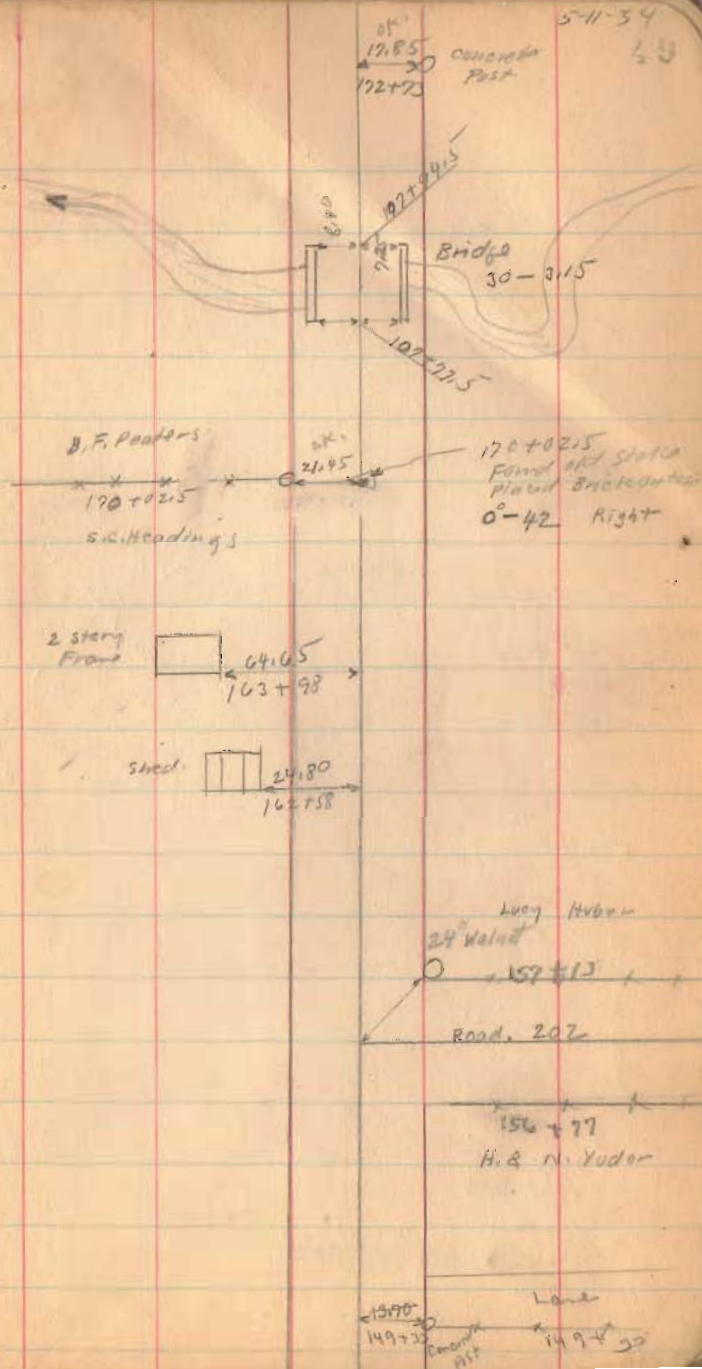 5-11-34
ok.
17.85
172+73
Concrete
Post
8.40
Bridge
30-3.15
B.F. Peaters
ok.
21.45
170+02.5
170+02.5
Found old Stake
Placed Brick
0°-42 Right
S.C. Headings
2 story
Frame
64.65
163+98
Shed.
24.80
162+58
Lucy Huber
24" Walnut
157+13
Road. 202
156+77
H. & N. Yoder
Lane
13.90
149+33
Concrete
Post
149+33